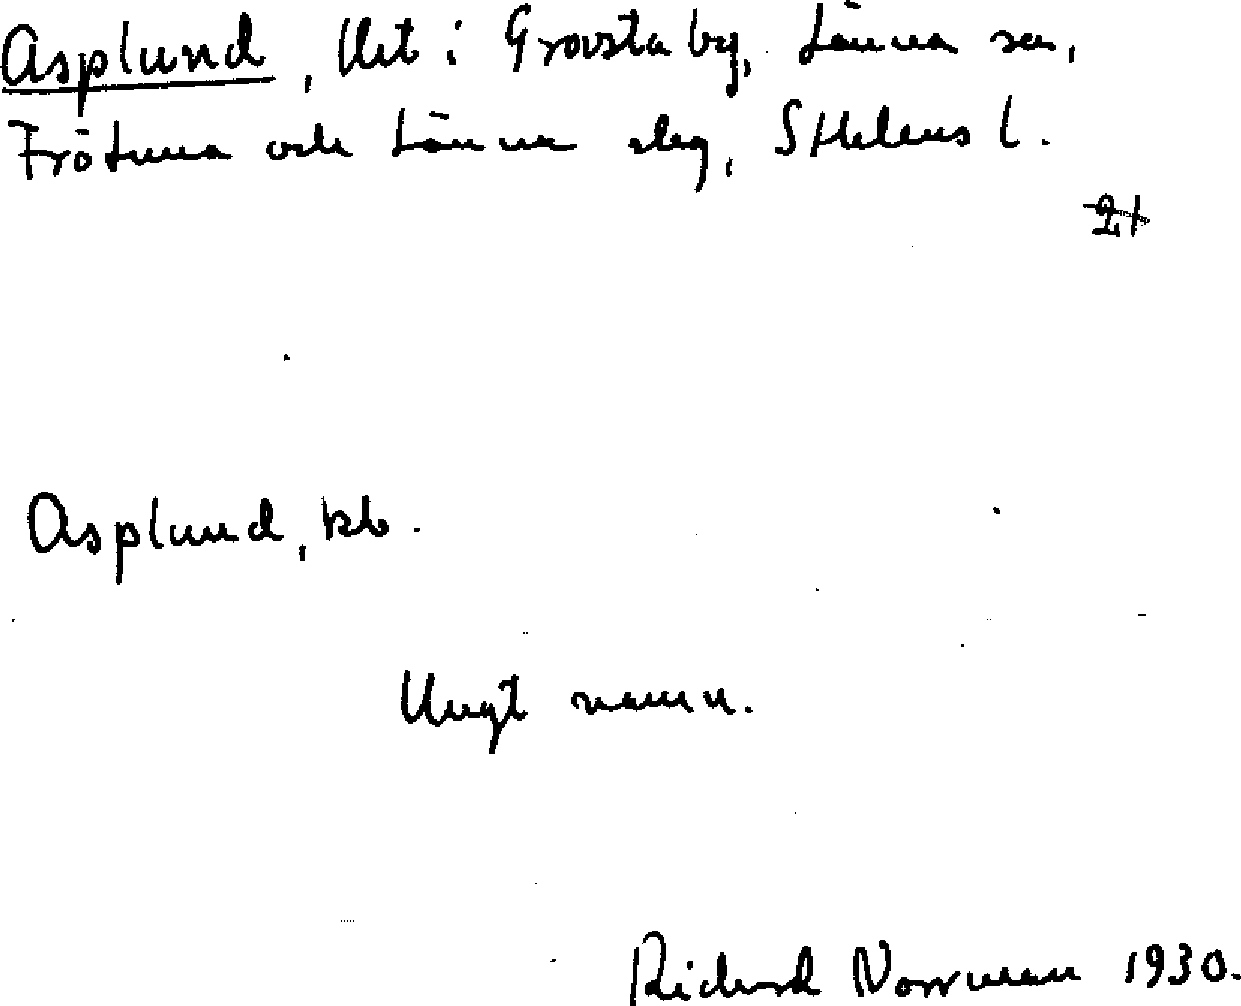 Asplund, lht i Grovsta by, Länna sn,
Frötuna och Länna slg, Sthlms l.
Asplund, kb.
Ungt namn.
Richard Norrman 1930.